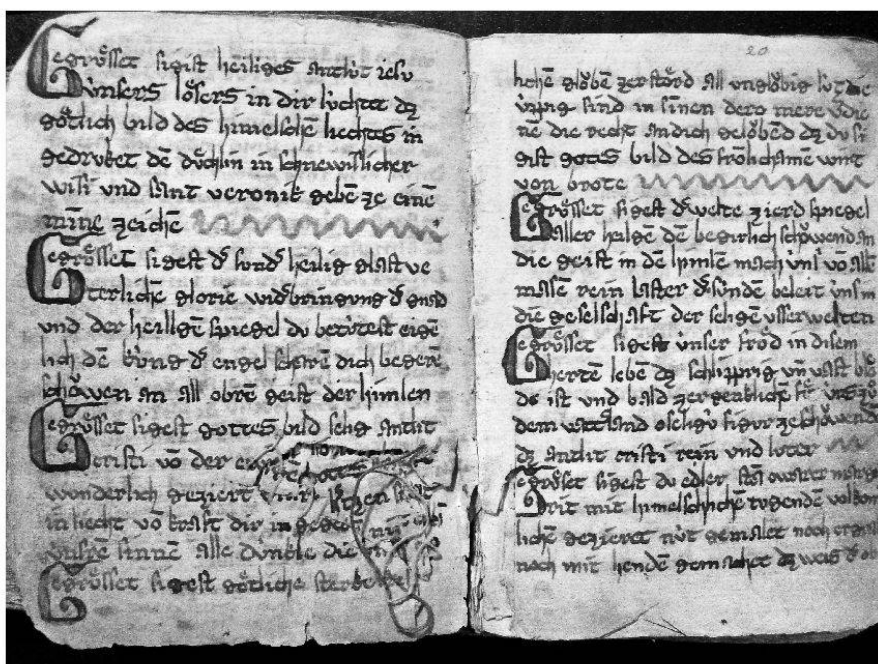 Gegrösset sigist heiliges antlút iesu
únsers lösers in dir lúchtet dz
götlich bild des himelschē liechtes in
gedruket dē dúchlin in schnewislicher
wis und sant veronik gebē ze einē
mīne zeichē
Gegrösset sigest dͬ sund heilig glast ve
terlichē glorie widbringung dͬ gnad
und der heilgē spiegel du betútest eigē
lich dē kúng dͬ engel scharē dich begerē
schöwen an all obrē geist der himlen
Gegrösset sigest gottes bild selig antlit
cristi vō der
wonderlich geziert
in liecht vō kraft dir in
únsre sinnē alle dunkle die
Gegrösset sigest götliche
20
lichē glöbē zerstörd all unglöbig lút die
úppig sind in sinen dero mere die
nē die recht an dich gelöbend dz du si
gist gotes bild des frölichamē wirt
von brote
Gegrösset sigest dͬ welte zierd spiegel
aller heilgē dē begirlich schöwend an
die geist in dē himlē mach úns vō allē
masē rein laster dͬ súnden beleit úns in
die geselschaft der selgē usserwelten
Gegrösset sigest únser fröd in disem
hertē lebē dz schlipprig uñ vast
do ist und bald zergenklichē
dem vatterland o selgú figur ze schöwend
dz antlit cristi rein und luter
Gegröset sigest du edler
mit himelschlichē tugenden
lichē gezieret nút gemalet noch
noch mit hendē gemachet dz weis dͬ